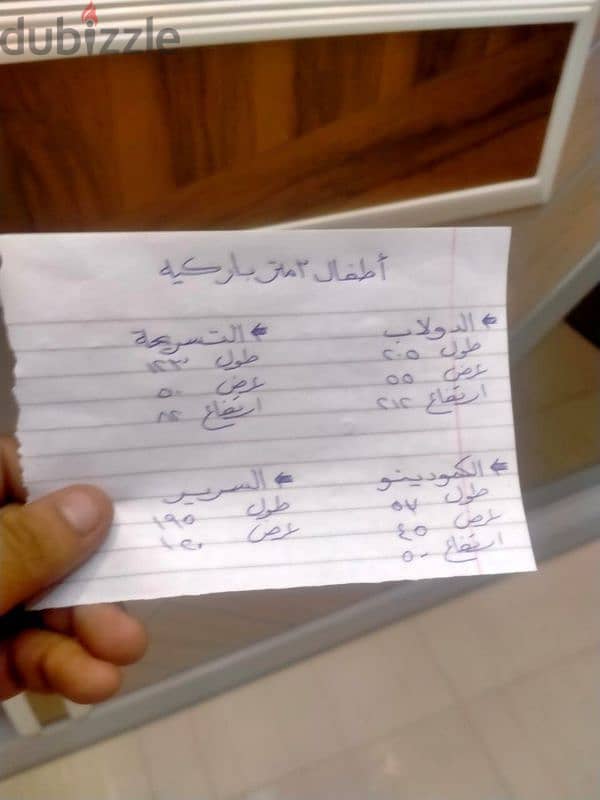 dubizzle
أطفال ٢ متر باركيه
← الدولاب
طول ٢٠٥
عرض ٥٥
ارتفاع ٢١٢
← التسريحة
طول ١٢٣
عرض ٥٠
ارتفاع ٨٢
← الكمودينو
طول ٥٧
عرض ٤٥
ارتفاع ٥٠
← السرير
طول ١٩٥
عرض ١٢٠